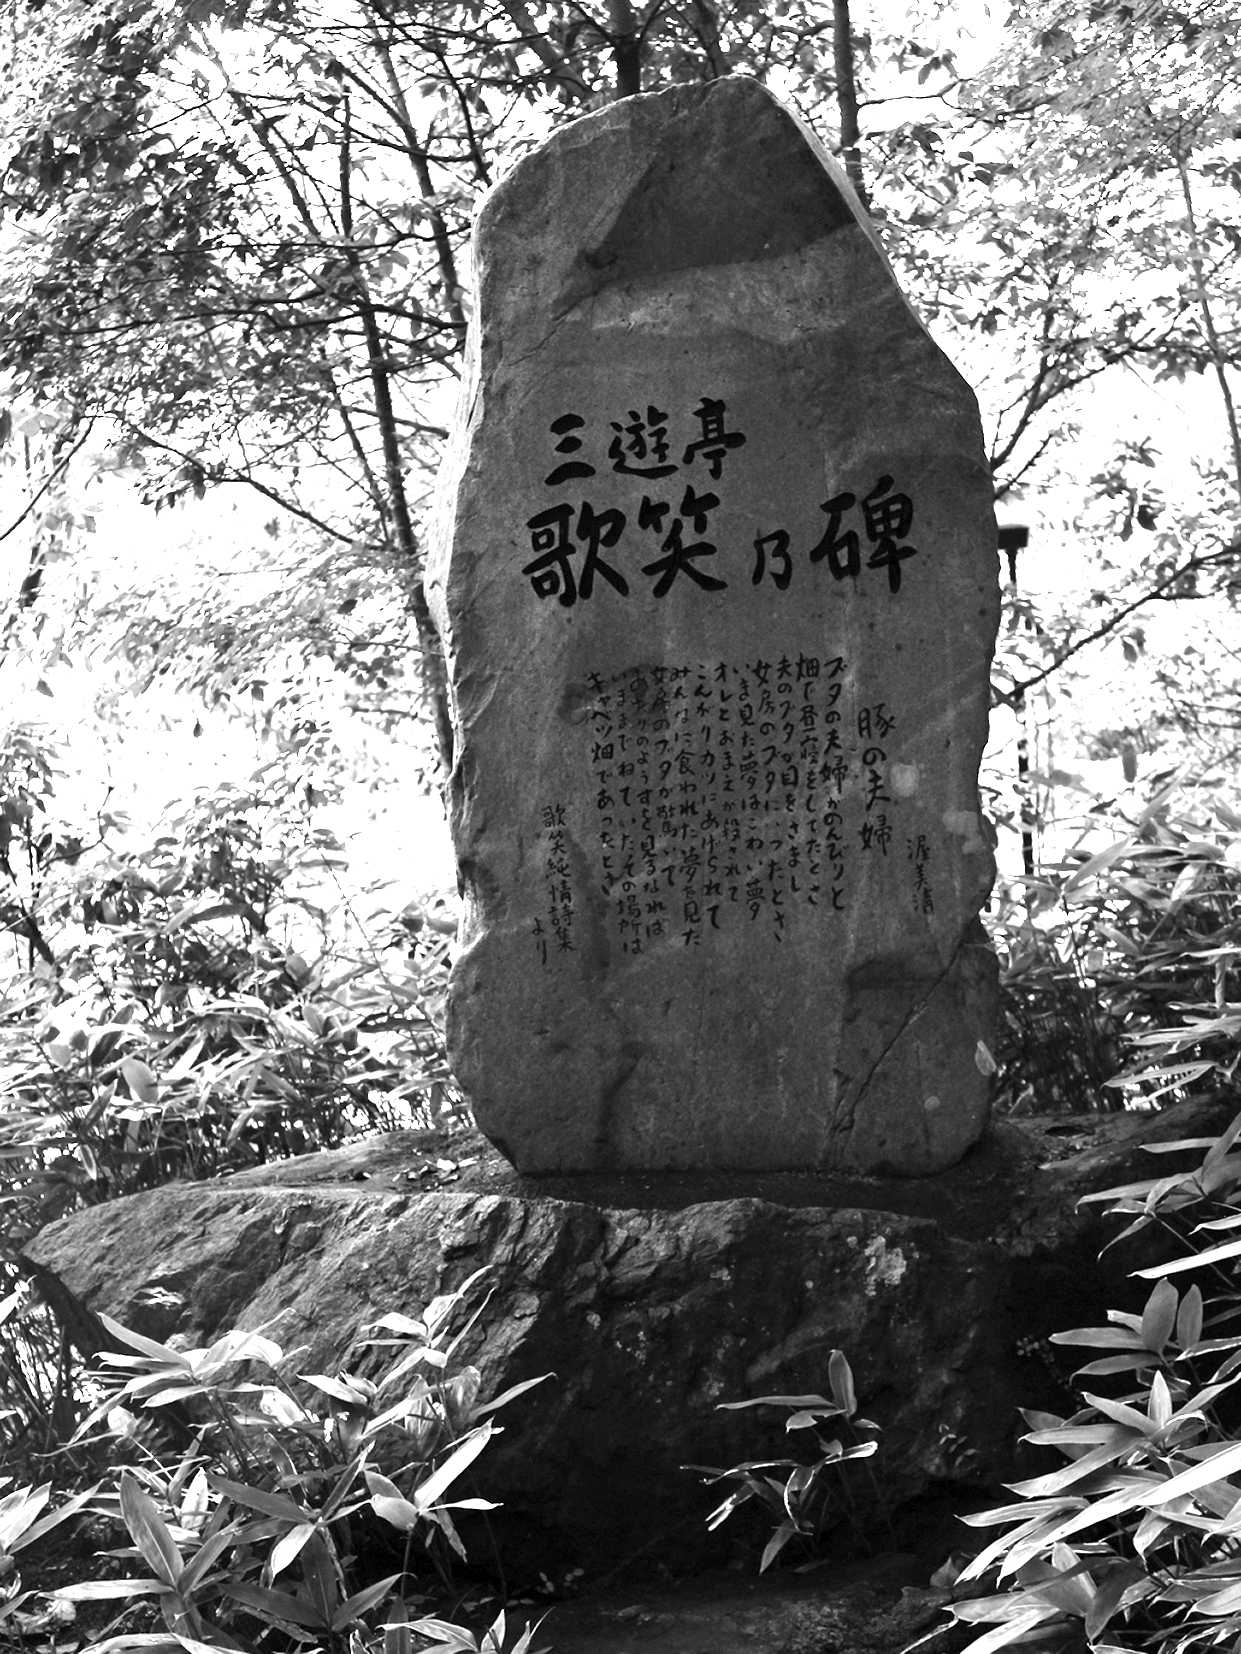 三遊亭
歌笑乃碑
渥美清
豚の夫婦
ブタの夫婦がのんびりと
畑で昼寝をしてたとさ
夫のブタが目をさまし
女房のブタにいったとさ
いま見た夢はこわい夢
オレとおまえが殺されて
こんがりカツにあげられて
みんなに食われた夢を見た
女房のブタが驚いて
あたりのようすを見るなれば
いままでねていたその場所は
キャベツ畑であったとさ
歌笑純情詩集
より